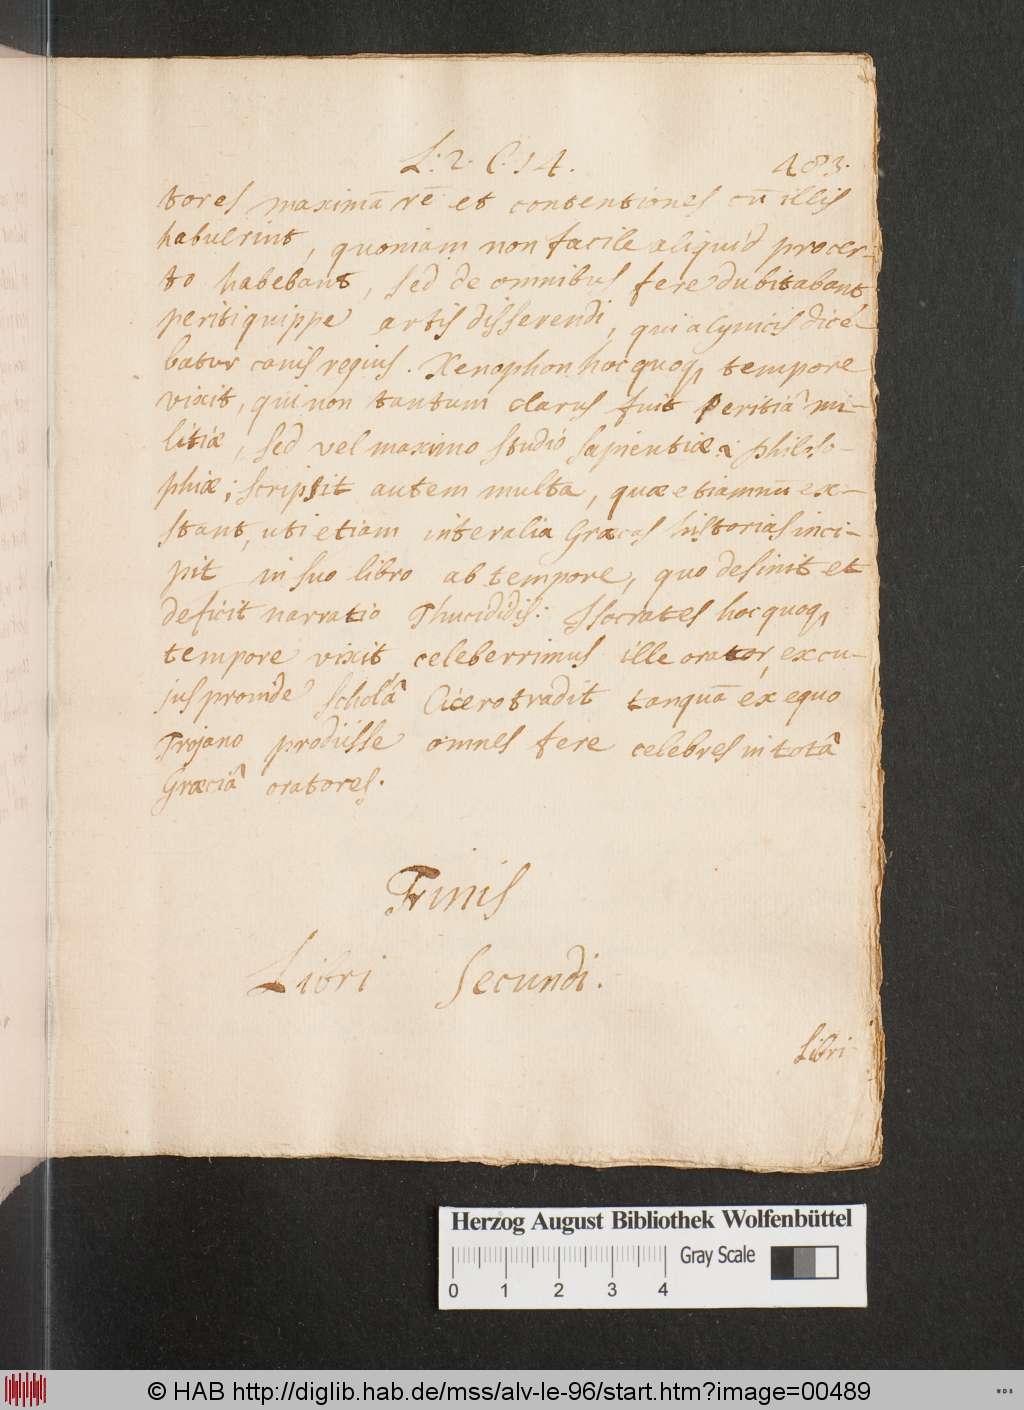 L. 2. C. 14.
483.
tores maximā rē et contentiones cū illis
habuerint, quoniam non facile aliquid procer-
to habebant, sed de omnibus fere dubitabant
peritiquippe artis disserendi, qui a Cynicis dice-
batur canis regius. Xenophon hoc quoq, tempore
vixit, qui non tantum clarus fuit Peritiâ mi-
litiæ, sed vel maximo studio sapientiæ & philoso-
phiæ; scripsit autem multa, quæ etiamnū ex-
stant, uti etiam inter alia Græcas historias inci-
pit in suo libro ab tempore, quo desinit et
deficit narratio Thucididis: Isocrates hoc quoq,
tempore vixit celeberrimus ille orator, ex cu-
jus proinde scholâ Cicero tradit tanquā ex equo
Trojano prodiisse omnes fere celebres in totâ
Græciâ oratores.
Finis
Libri Secundi.
Libri
Herzog August Bibliothek Wolfenbüttel
Gray Scale
0 1 2 3 4
© HAB http://diglib.hab.de/mss/alv-le-96/start.htm?image=00489